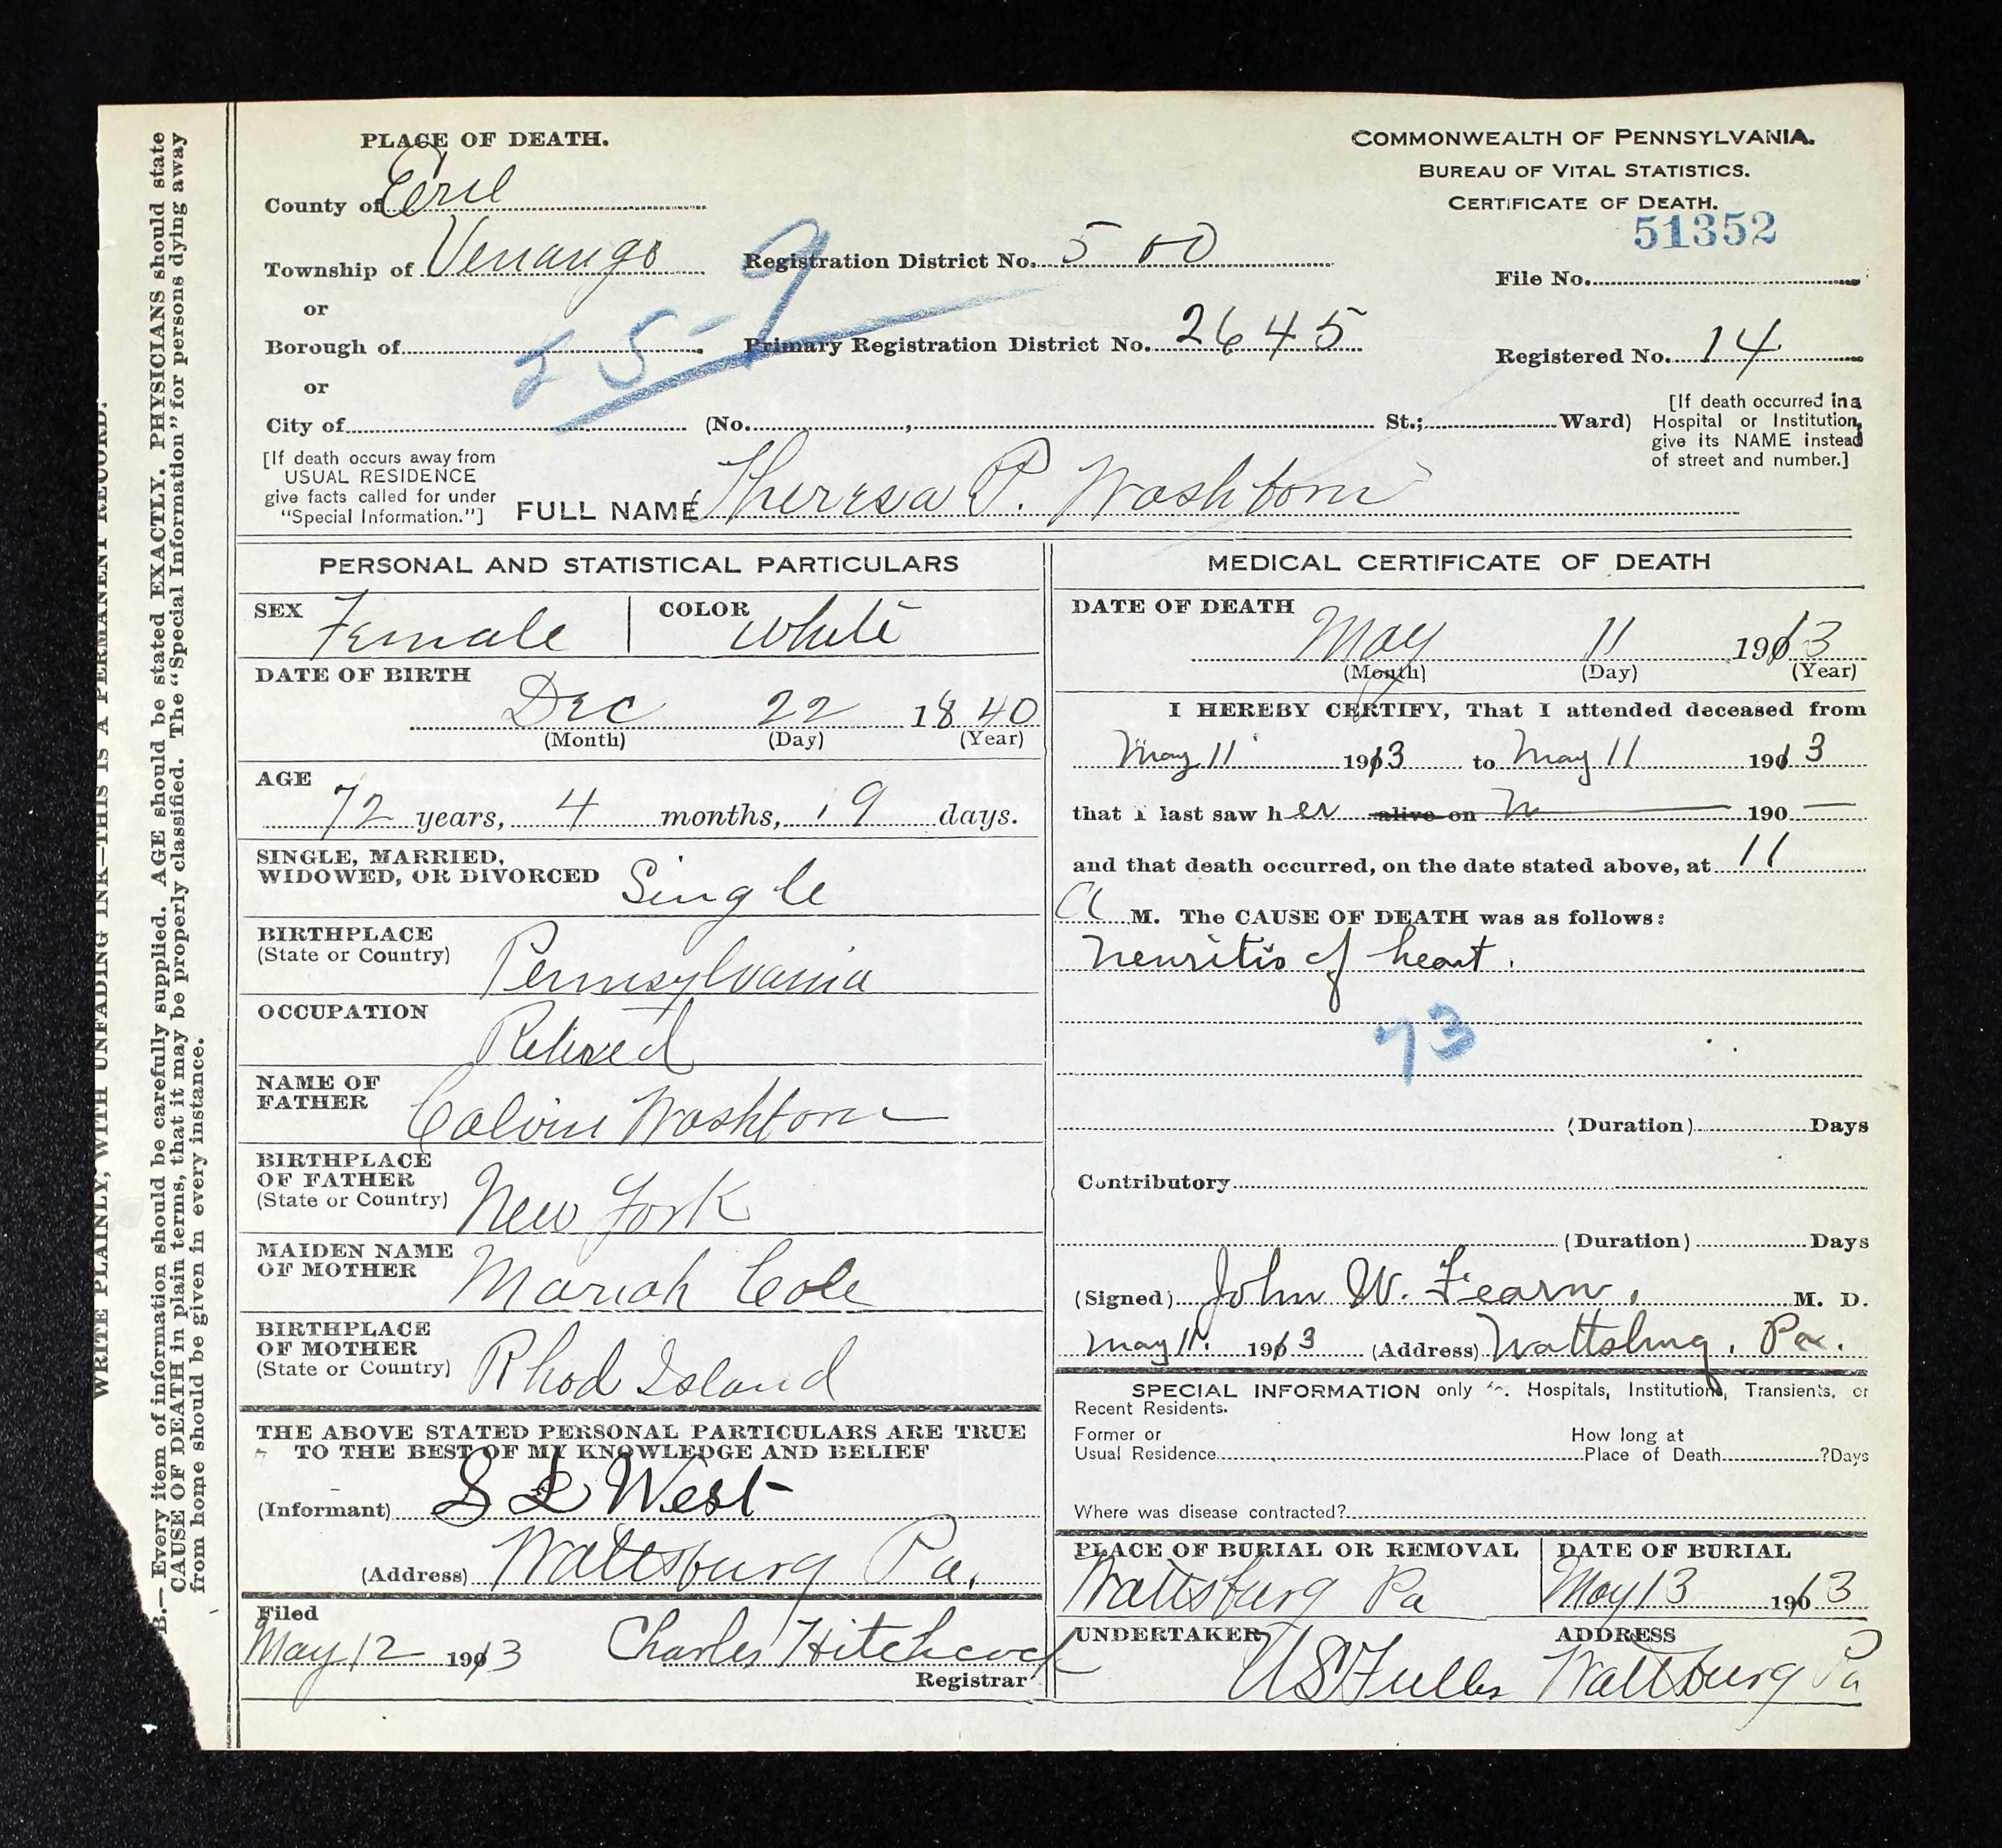 PLACE OF DEATH.
County of Erie
Township of Venango
or
Borough of
or
City of
(No. , St.; Ward)
[If death occurs away from
USUAL RESIDENCE
give facts called for under
"Special Information."]
Registration District No. 500
25-9
Primary Registration District No. 2645
COMMONWEALTH OF PENNSYLVANIA.
BUREAU OF VITAL STATISTICS.
CERTIFICATE OF DEATH.
51352
File No.
Registered No. 14
[If death occurred in a
Hospital or Institution,
give its NAME instead
of street and number.]
FULL NAME Theresa P. Washton
PERSONAL AND STATISTICAL PARTICULARS
SEX Female COLOR White
DATE OF BIRTH
Dec 22 1840
(Month) (Day) (Year)
AGE
72 years, 4 months, 19 days.
SINGLE, MARRIED,
WIDOWED, OR DIVORCED Single
BIRTHPLACE
(State or Country) Pennsylvania
OCCUPATION
Retired
NAME OF
FATHER Calvin Washton
BIRTHPLACE
OF FATHER
(State or Country) New York
MAIDEN NAME
OF MOTHER Mariah Cole
BIRTHPLACE
OF MOTHER
(State or Country) Rhod Island
THE ABOVE STATED PERSONAL PARTICULARS ARE TRUE
TO THE BEST OF MY KNOWLEDGE AND BELIEF
(Informant) S L West
(Address) Wattsburg Pa.
Filed
May 12 1913 Charles Hitchcock
Registrar
MEDICAL CERTIFICATE OF DEATH
DATE OF DEATH
May 11 1913
(Month) (Day) (Year)
I HEREBY CERTIFY, That I attended deceased from
May 11 1913 to May 11 1913
that I last saw her alive on 190
and that death occurred, on the date stated above, at 11
A M. The CAUSE OF DEATH was as follows:
Neuritis of heart.
73
(Duration) Days
Contributory
(Duration) Days
(Signed) John W. Fearn, M. D.
May 11. 1913 (Address) Wattsburg, Pa.
SPECIAL INFORMATION only for Hospitals, Institutions, Transients, or
Recent Residents.
Former or
Usual Residence
How long at
Place of Death ?Days
Where was disease contracted?
PLACE OF BURIAL OR REMOVAL
Wattsburg Pa
DATE OF BURIAL
May 13 1913
UNDERTAKER
U S Fuller
ADDRESS
Wattsburg Pa
WRITE PLAINLY, WITH UNFADING INK—THIS IS A PERMANENT RECORD.
B.—Every item of information should be carefully supplied. AGE should be stated EXACTLY. PHYSICIANS should state
CAUSE OF DEATH in plain terms, that it may be properly classified. The "Special Information" for persons dying away
from home should be given in every instance.